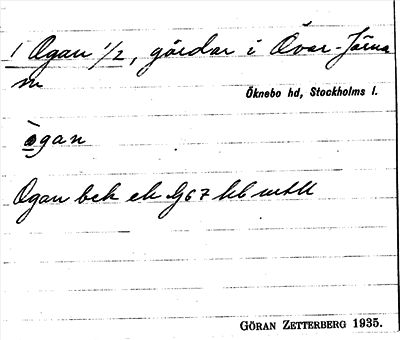 1 Ogan 1/2, gårdar i Över-Järna
sn
Öknebo hd, Stockholms l.
ògan
Ogan bek ek G67 kl
GÖRAN ZETTERBERG 1935.